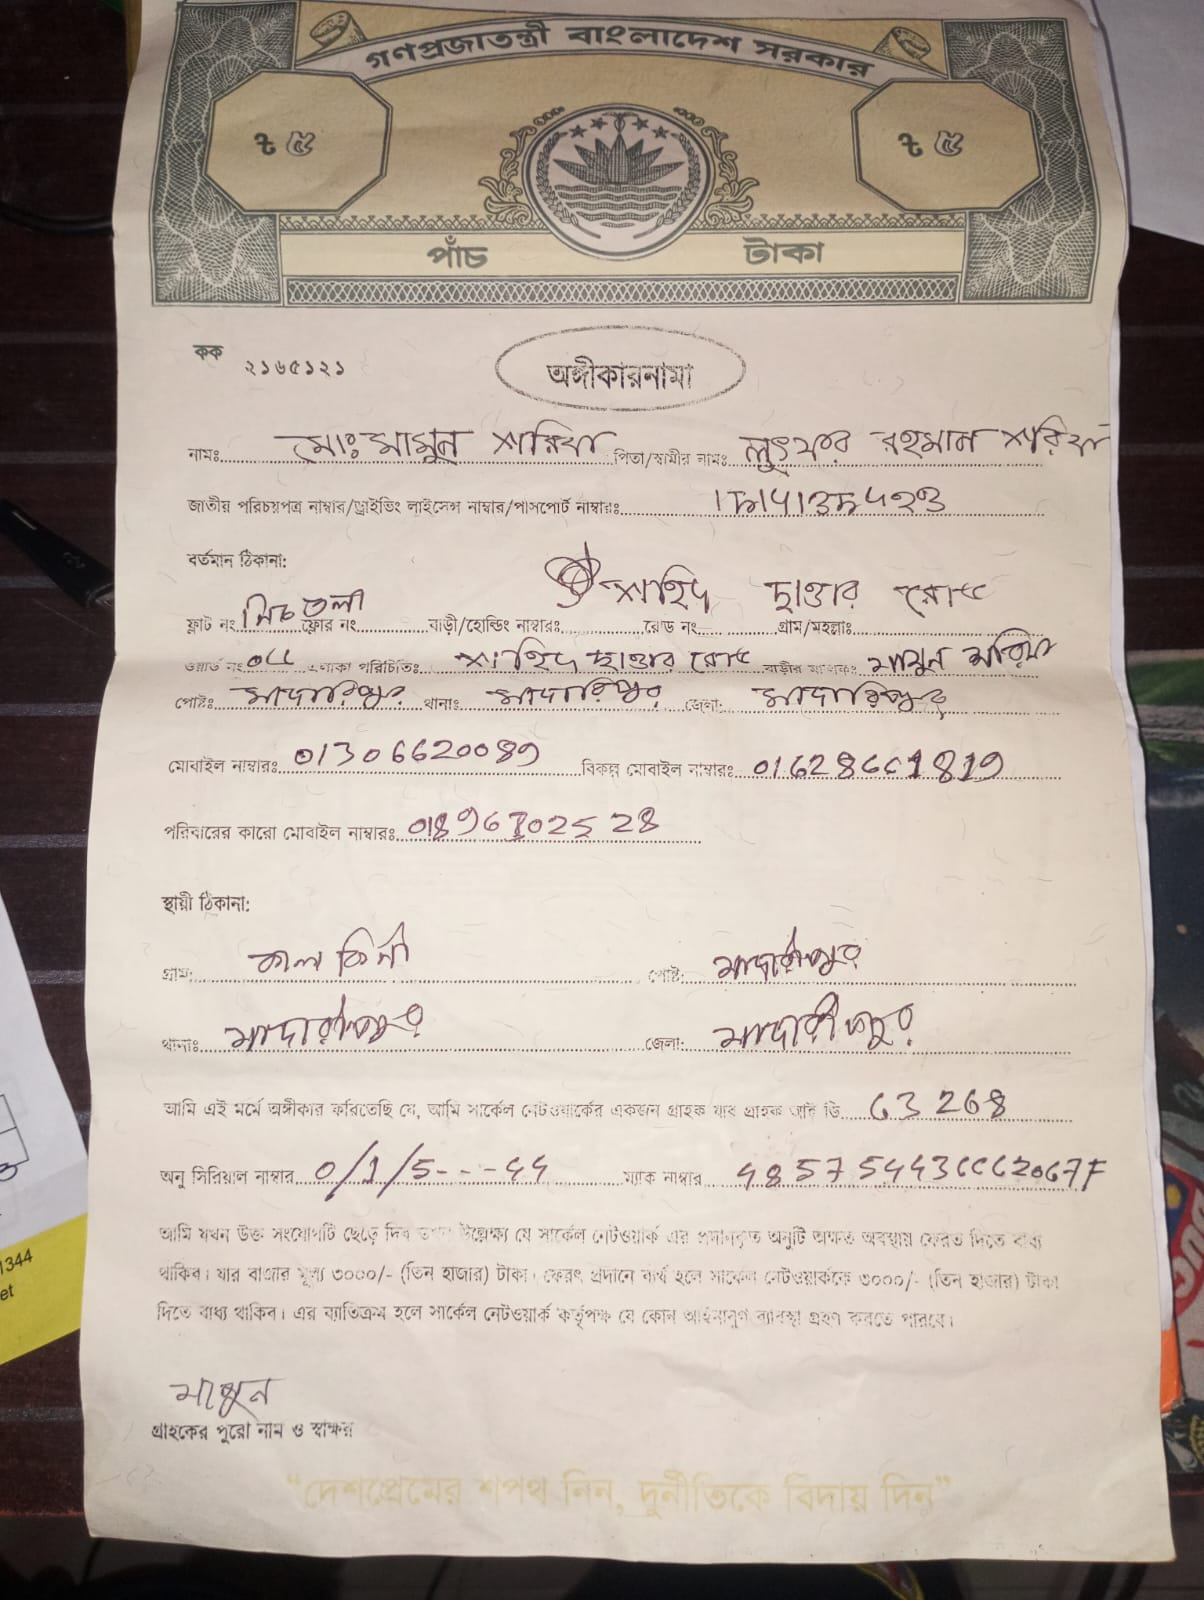 গণপ্রজাতন্ত্রী বাংলাদেশ সরকার
৳ ৫ ৳ ৫
পাঁচ টাকা
কক ২১৬৫১২১
অঙ্গীকারনামা
নামঃ মোঃ মামুন শরিফ পিতা/স্বামীর নামঃ লুৎফর রহমান শরিফ
জাতীয় পরিচয়পত্র নাম্বার/ড্রাইভিং লাইসেন্স নাম্বার/পাসপোর্ট নাম্বারঃ
বর্তমান ঠিকানা:
শহিদ ছাত্তার রোড
ফ্লাট নং নিচ তলা ফ্লোর নং বাড়ী/হোল্ডিং নাম্বারঃ রোড নং গ্রাম/মহল্লাঃ
ওয়ার্ড নং এলাকা পরিচিতিঃ শহিদ ছাত্তার রোড বাড়ীর মালিকঃ মামুন
পোষ্টঃ মাদারিপুর থানাঃ মাদারিপুর জেলা: মাদারিপুর
মোবাইল নাম্বারঃ 01306620089 বিকল্প মোবাইল নাম্বারঃ
পরিবারের কারো মোবাইল নাম্বারঃ
স্থায়ী ঠিকানা:
গ্রাম: কালকিনী পোষ্ট: মাদারীপুর
থানাঃ মাদারীপুর জেলা: মাদারীপুর
আমি এই মর্মে অঙ্গীকার করিতেছি যে, আমি সার্কেল নেটওয়ার্কের একজন গ্রাহক যার গ্রাহক আই ডি 63268
অনু সিরিয়াল নাম্বার 0/1/5---44 ম্যাক নাম্বার
আমি যখন উক্ত সংযোগটি ছেড়ে দিব তখন উল্লেক্ষ্য যে সার্কেল নেটওয়ার্ক এর প্রদানকৃত অনুটি অক্ষত অবস্থায় ফেরত দিতে বাধ্য
থাকিব। যার বাজার মূল্য ৩০০০/- (তিন হাজার) টাকা। ফেরৎ প্রদানে ব্যর্থ হলে সার্কেল নেটওয়ার্ককে ৩০০০/- (তিন হাজার) টাকা
দিতে বাধ্য থাকিব। এর ব্যাতিক্রম হলে সার্কেল নেটওয়ার্ক কর্তৃপক্ষ যে কোন আইনানুগ ব্যাবস্থা গ্রহন করতে পারবে।
মামুন
গ্রাহকের পুরো নাম ও স্বাক্ষর
“দেশপ্রেমের শপথ নিন, দুর্নীতিকে বিদায় দিন”
1344
et